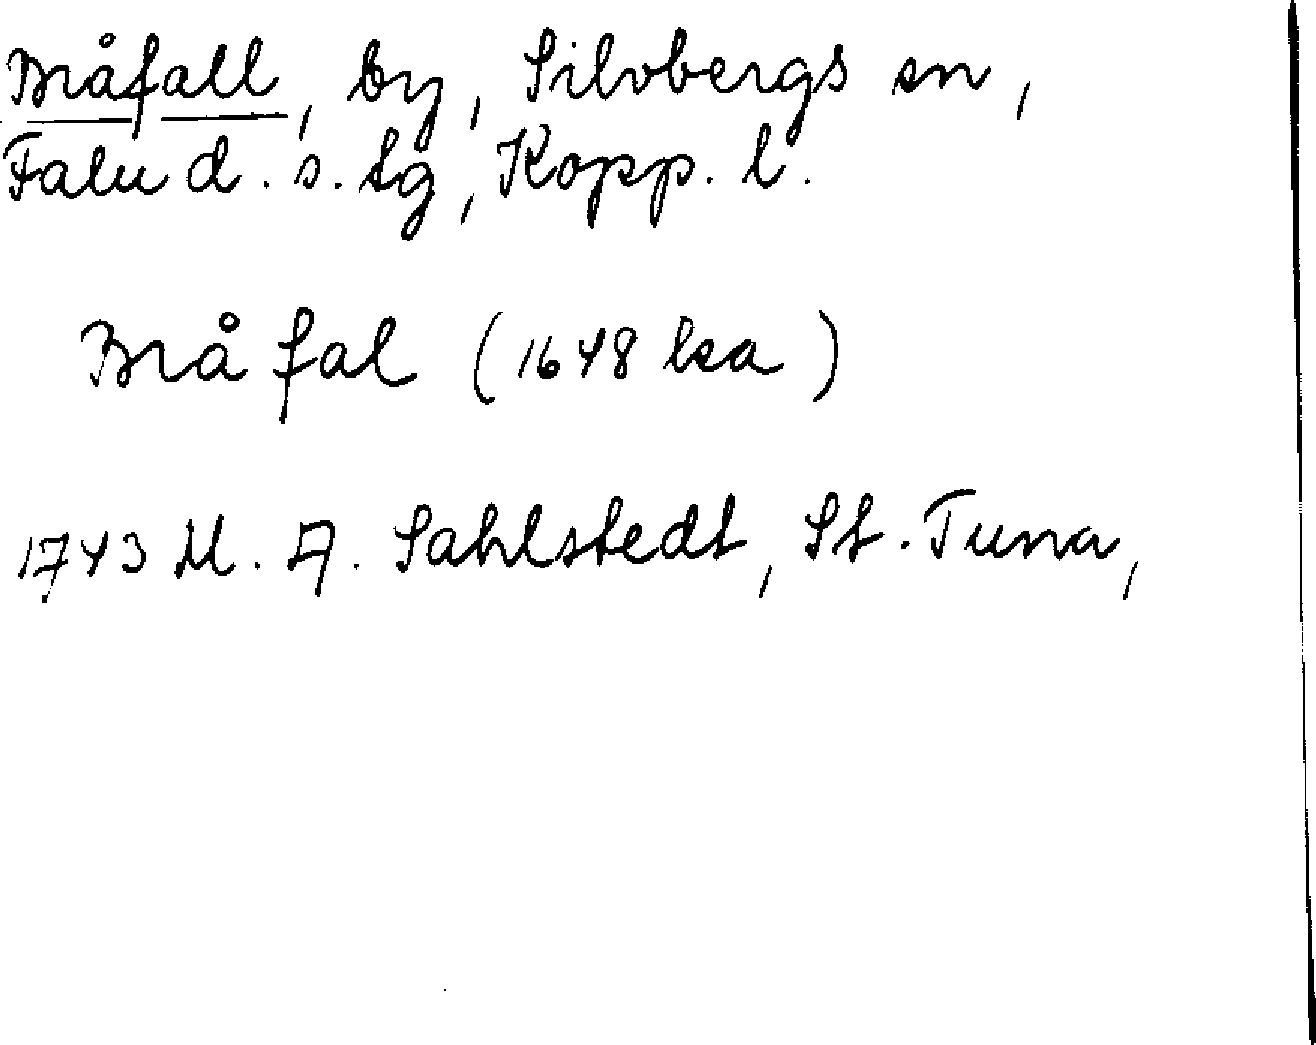 Bråfall, by, Silvbergs sn,
Falu d. s. tg, Kopp. l.
Brå fal (1648 lsa)
1743 M. A. Sahlstedt, St. Tuna,